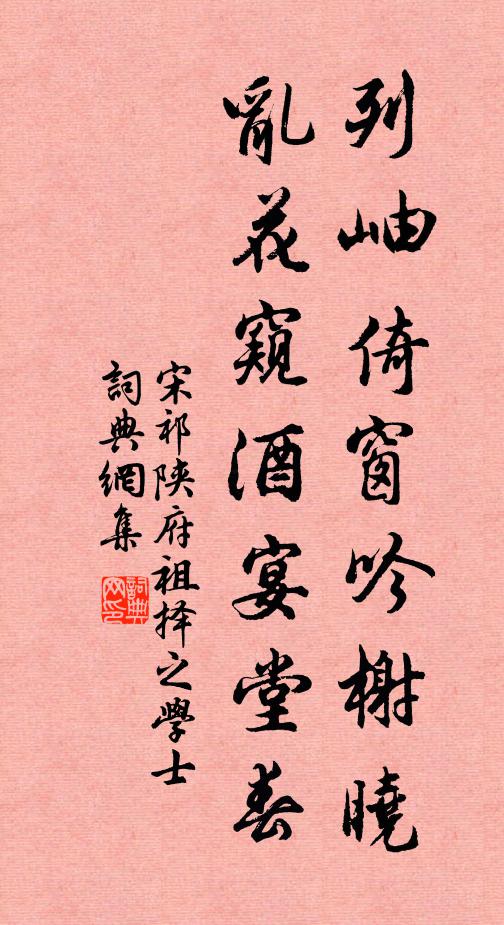 列岫倚窗吟榭曉
亂花窺酒宴堂春
宋祁陝府祖择之學士
詞典網集
詞典網印